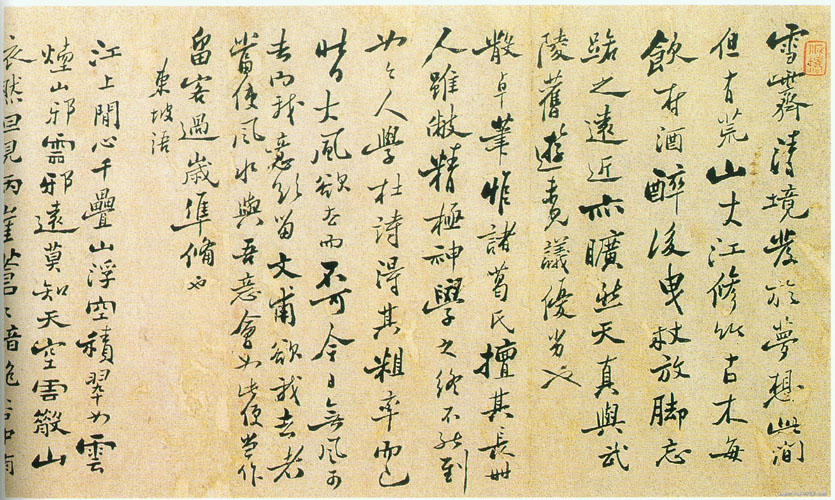 雪齋清境發於夢想此間
但有荒山大江修竹古木每
飲村酒醉後曳杖放脚忘
路之遠近亦曠然天真與武
陵舊遊未見議優劣也
散卓筆惟諸葛氏擅其長世
人雖敝精極神學之終不能到
如人學杜詩得其粗率而已
昨日大風欲去而不可今日無風可
去而我意欲留文甫欲我去者
當使風水與吾意會如此便當作
留客過歲準備也
東坡語
江上閒心千疊山浮空積翠如雲
煙山邪雲邪遠莫知天空雲散山
依然但見兩崖蒼蒼暗絕谷中有